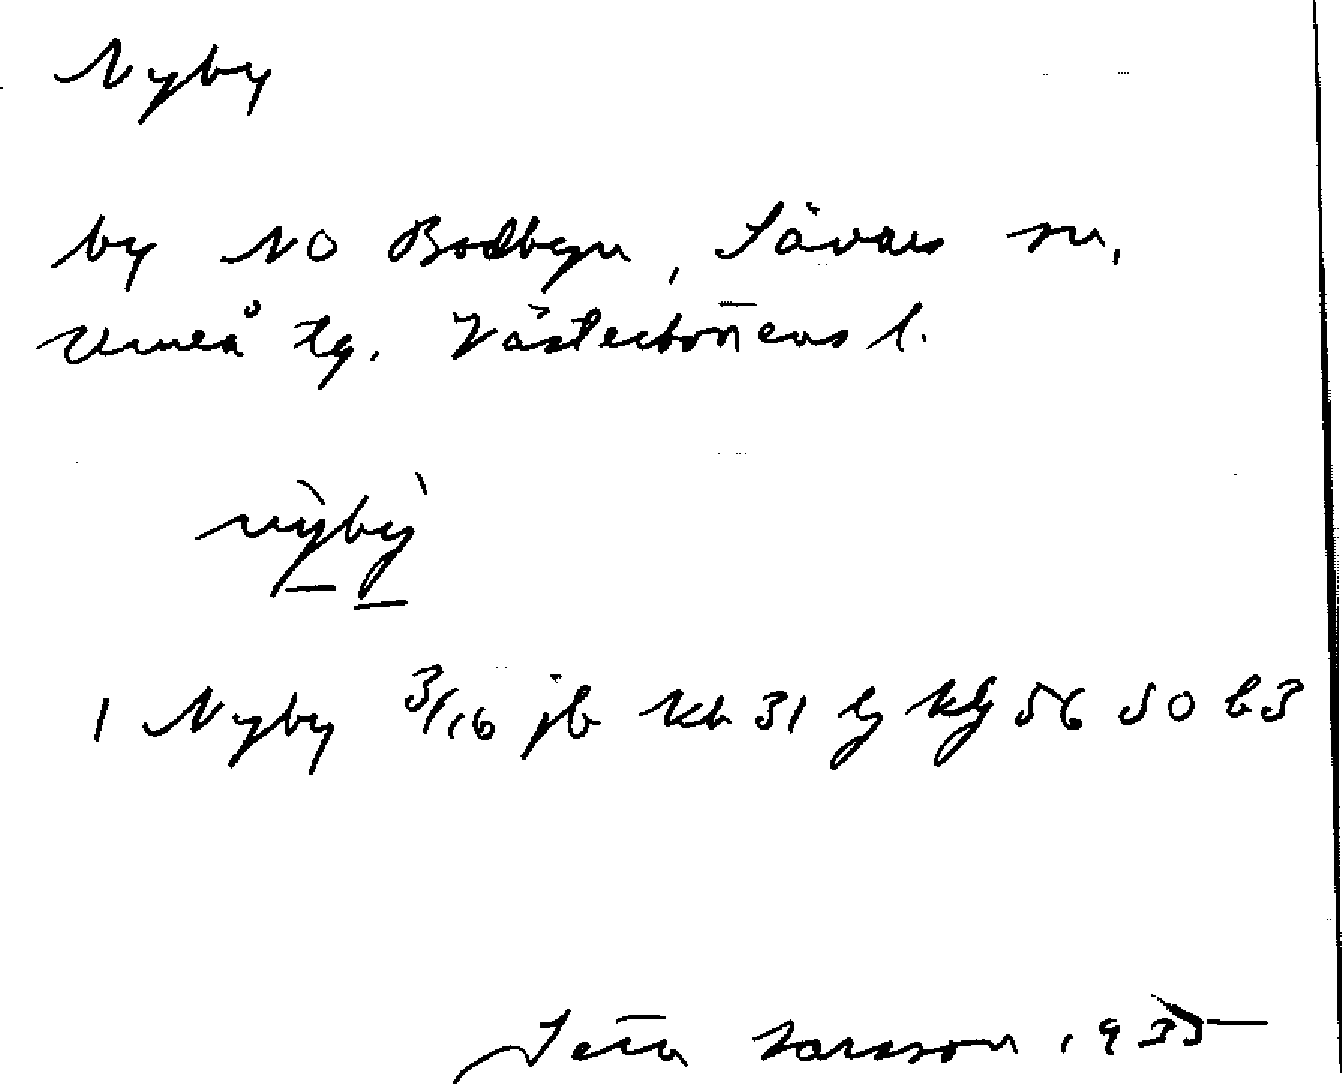 Nyby
by NO Bodbyn, Sävars sn,
Umeå tg. Västerbottens l.
nỳbỳ
1 Nyby 3/16 jb kb 31 lj klj 56 50 b3
Larsson 1935